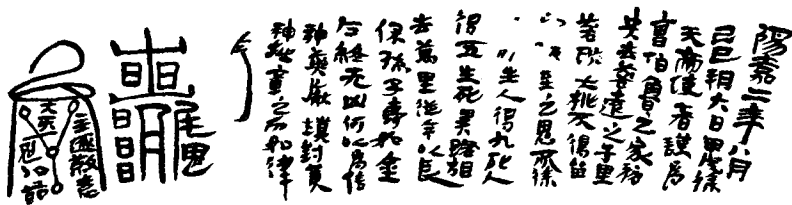 陽嘉二年八月
己巳朔六日甲戌徐
天帝使者謹爲
曹伯魯之家移
央去咎遠之千里
咎大桃不得留
至之鬼所徐
生人得九死人
得五生死異路相
去萬里從今以長
保孫子壽如金
石終无凶何以爲信
神藥厭塡封黃
神越章之印如律
令
尾鬼
大天一
主逐敦惡
鬼以節